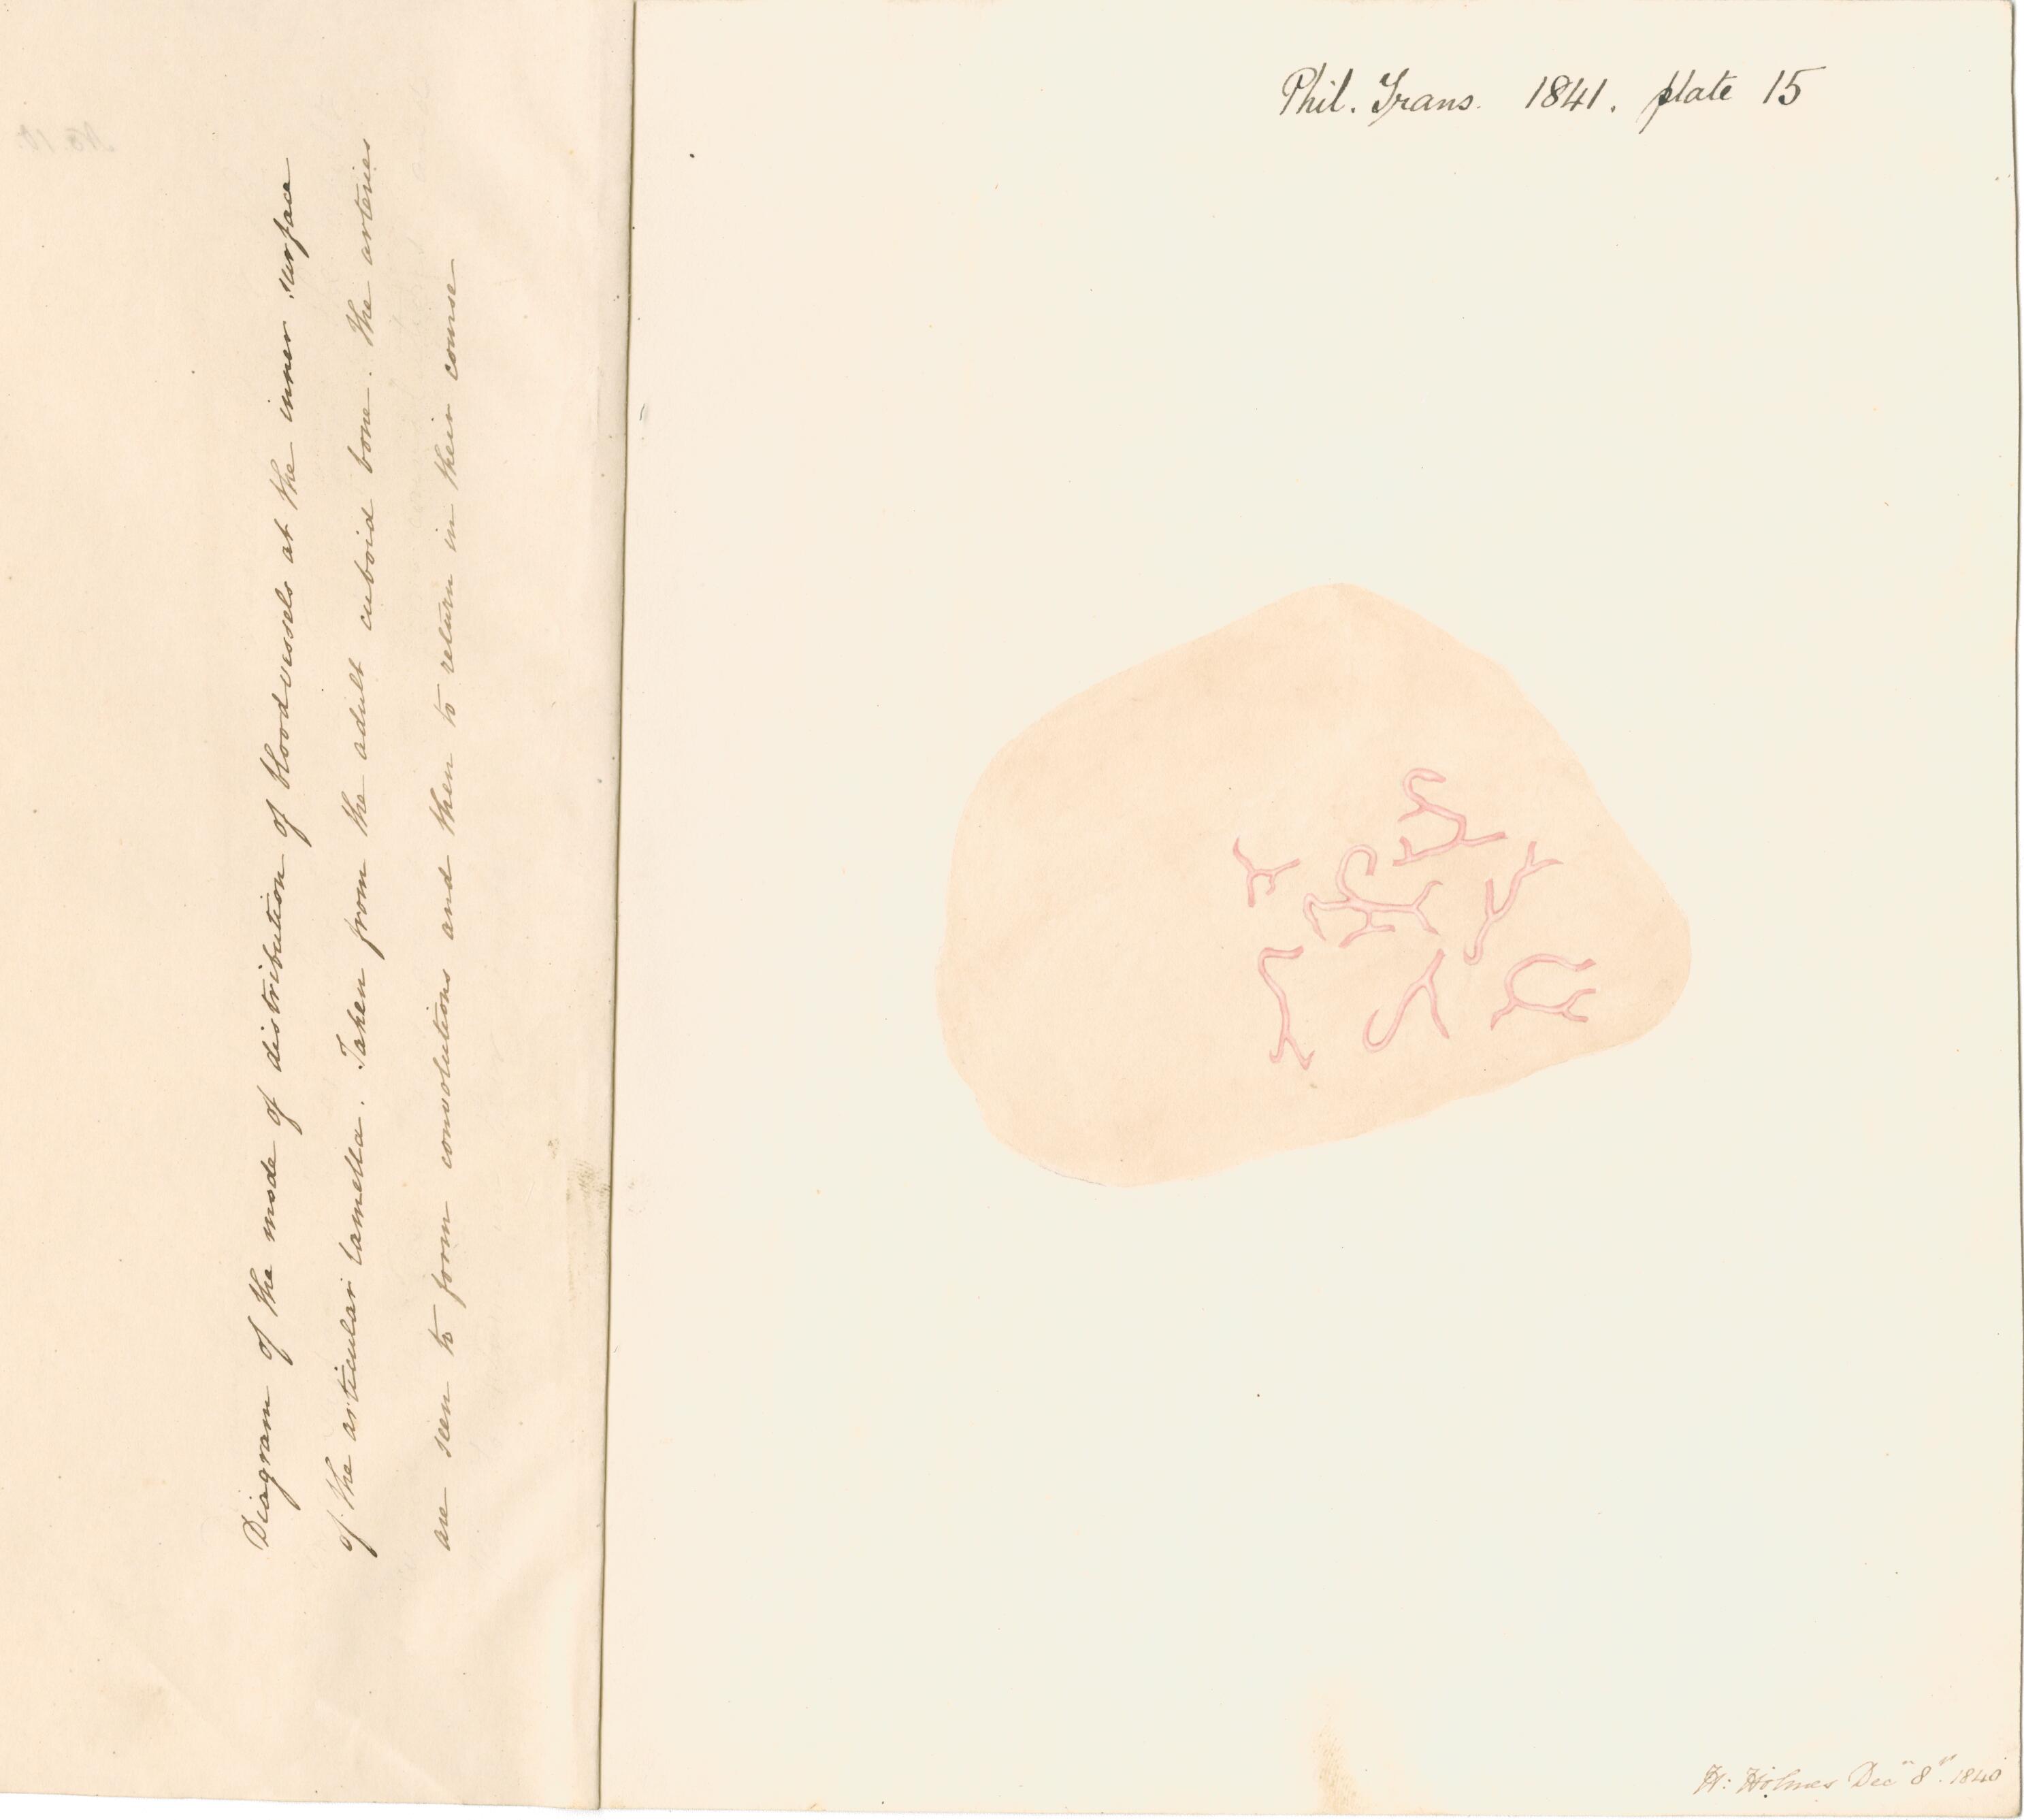 Diagram of the mode of distribution of bloodvessels at the inner surface
of the articular lamella. Taken from the adult cuboid bone. The arteries
are seen to form convolutions and then to return in their course
Phil. Trans. 1841. plate 15
H: Holmes Decr 8th. 1840